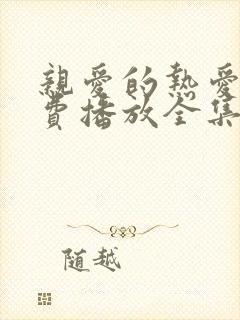 親愛的熱愛
費播放全集
随越